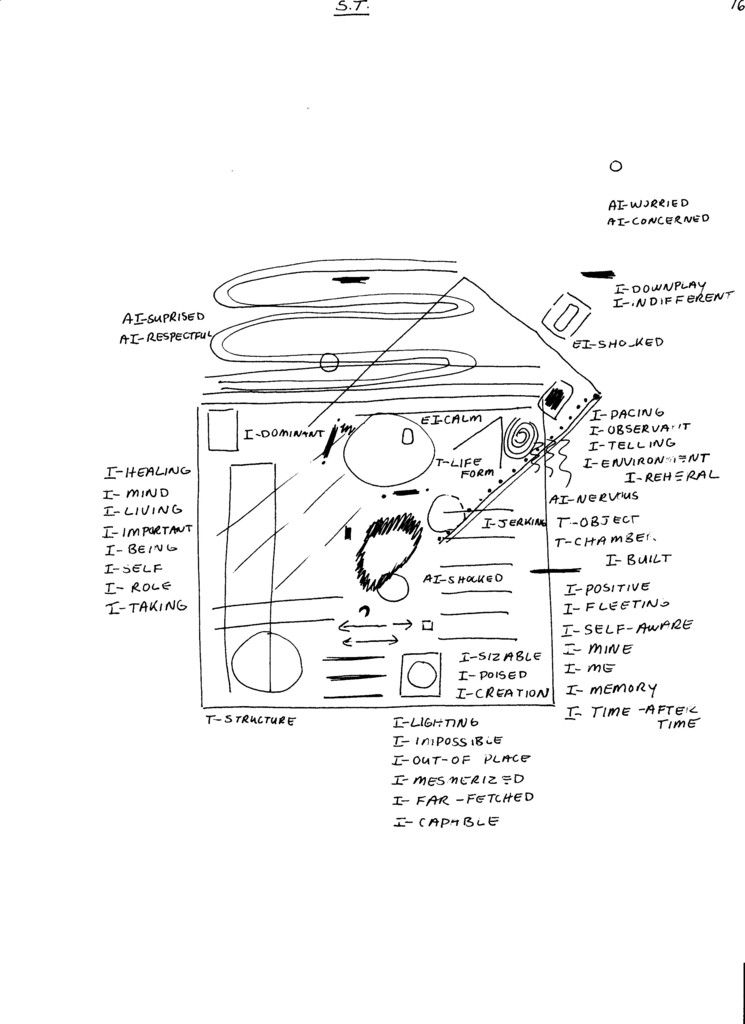 S.T.
16
AI-WORRIED
AI-CONCERNED
I-DOWNPLAY
I-INDIFFERENT
EI-SHOCKED
AI-SUPRISED
AI-RESPECTFUL
I-DOMINANT
EI-CALM
T-LIFE
FORM
I-JERKING
AI-SHOCKED
I-PACING
I-OBSERVANT
I-TELLING
I-ENVIRONMENT
I-REHERAL
AI-NERVOUS
T-OBJECT
T-CHAMBER
I-BUILT
I-HEALING
I-MIND
I-LIVING
I-IMPORTANT
I-BEING
I-SELF
I-ROLE
I-TAKING
I-POSITIVE
I-FLEETING
I-SELF-AWARE
I-MINE
I-ME
I-MEMORY
I-TIME-AFTER
TIME
I-SIZABLE
I-POISED
I-CREATION
T-STRUCTURE
I-LIGHTING
I-IMPOSSIBLE
I-OUT-OF PLACE
I-MESMERIZED
I-FAR-FETCHED
I-CAPABLE